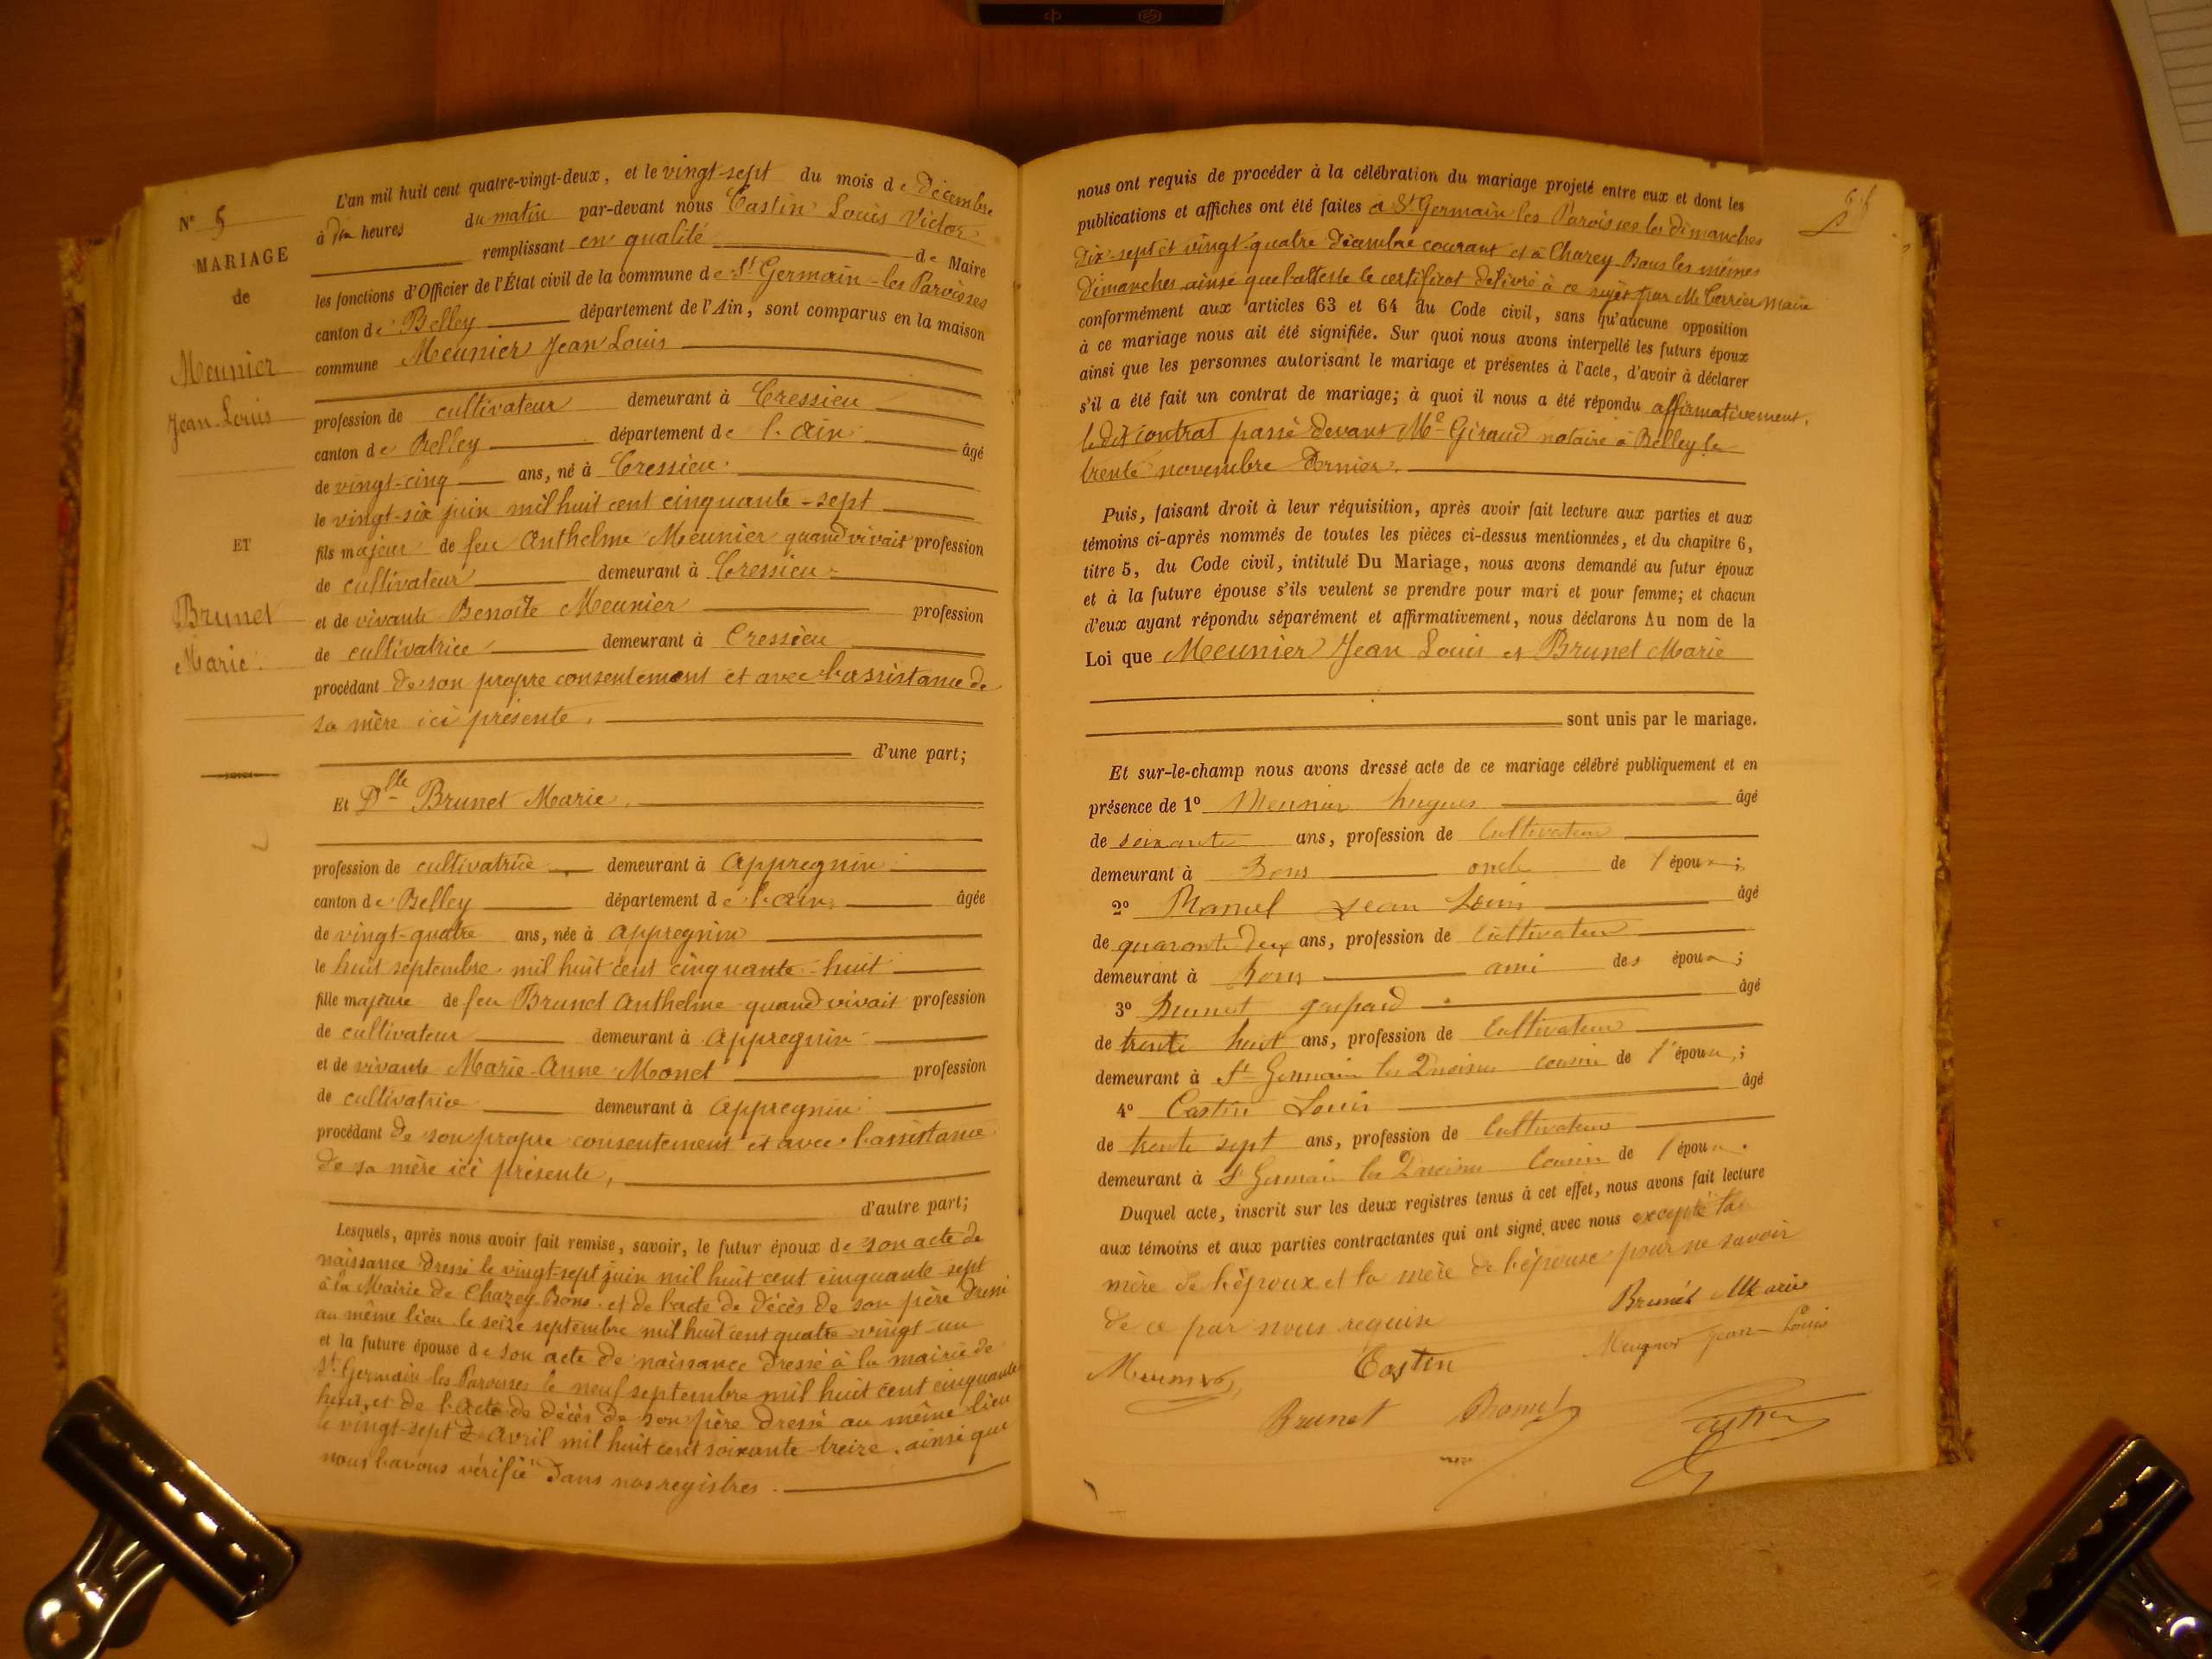 N° 5
MARIAGE
de
Meunier
Jean Louis
ET
Brunet
Marie
L'an mil huit cent quatre-vingt-deux, et le vingt-sept du mois de décembre
à dix heures du matin par-devant nous Castin Louis Victor
remplissant en qualité de Maire
les fonctions d'Officier de l'État civil de la commune de St Germain-les Paroisses
canton de Belley département de l'Ain, sont comparus en la maison
commune Meunier Jean Louis
profession de cultivateur demeurant à Cressieu
canton de Belley département de l'Ain âgé
de vingt-cinq ans, né à Cressieu
le vingt-six juin mil huit cent cinquante-sept
fils majeur de feu Anthelme Meunier quand vivait profession
de cultivateur demeurant à Cressieu
et de vivante Benoite Meunier profession
de cultivatrice demeurant à Cressieu
procédant de son propre consentement et avec l'assistance de
sa mère ici présente,
d'une part;
Et Dlle Brunet Marie
profession de cultivatrice demeurant à Appregnin
canton de Belley département de l'Ain âgée
de vingt-quatre ans, née à Appregnin
le huit septembre mil huit cent cinquante-huit
fille majeure de feu Brunet Anthelme quand vivait profession
de cultivateur demeurant à Appregnin
et de vivante Marie-Anne Monet profession
de cultivatrice demeurant à Appregnin
procédant de son propre consentement et avec l'assistance
de sa mère ici présente,
d'autre part;
Lesquels, après nous avoir fait remise, savoir, le futur époux de son acte de
naissance dressé le vingt-sept juin mil huit cent cinquante sept
à la Mairie de Chazey Bons et de l'acte de décès de son père dressé
au même lieu le seize septembre mil huit cent quatre-vingt-un
et la future épouse de son acte de naissance dressé à la mairie de
St Germain les Paroisses le neuf septembre mil huit cent cinquante
huit, et de l'acte de décès de son père dressé au même lieu
le vingt-sept avril mil huit cent soixante-treize, ainsi que
nous l'avons vérifié dans nos registres.
nous ont requis de procéder à la célébration du mariage projeté entre eux et dont les
publications et affiches ont été faites à St Germain les Paroisses les dimanches
dix-sept et vingt-quatre décembre courant et à Chazey Bons les mêmes
dimanches ainsi que l'atteste le certificat délivré à ce sujet par Mr maire
conformément aux articles 63 et 64 du Code civil, sans qu'aucune opposition
à ce mariage nous ait été signifiée. Sur quoi nous avons interpellé les futurs époux
ainsi que les personnes autorisant le mariage et présentes à l'acte, d'avoir à déclarer
s'il a été fait un contrat de mariage; à quoi il nous a été répondu affirmativement,
ledit contrat passé devant Me Giraud notaire à Belley le
trente novembre dernier.
Puis, faisant droit à leur réquisition, après avoir fait lecture aux parties et aux
témoins ci-après nommés de toutes les pièces ci-dessus mentionnées, et du chapitre 6,
titre 5, du Code civil, intitulé Du Mariage, nous avons demandé au futur époux
et à la future épouse s'ils veulent se prendre pour mari et pour femme; et chacun
d'eux ayant répondu séparément et affirmativement, nous déclarons Au nom de la
Loi que Meunier Jean Louis et Brunet Marie
sont unis par le mariage.
Et sur-le-champ nous avons dressé acte de ce mariage célébré publiquement et en
présence de 1° Meunier hugues âgé
de soixante ans, profession de Cultivateur
demeurant à Bons oncle de l'époux;
2° Jean Louis âgé
de quarante deux ans, profession de Cultivateur
demeurant à Bons ami des époux;
3° Brunet gaspard âgé
de trente huit ans, profession de Cultivateur
demeurant à St Germain les Paroisses cousin de l'épouse;
4° Castin Louis âgé
de trente sept ans, profession de Cultivateur
demeurant à St Germain les Paroisses Cousin de l'épouse.
Duquel acte, inscrit sur les deux registres tenus à cet effet, nous avons fait lecture
aux témoins et aux parties contractantes qui ont signé avec nous excepté la
mère de l'époux et la mère de l'épouse pour ne savoir
de ce par nous requise
Brunet Marie
Jean-Louis
Castin
Brunet
Castin